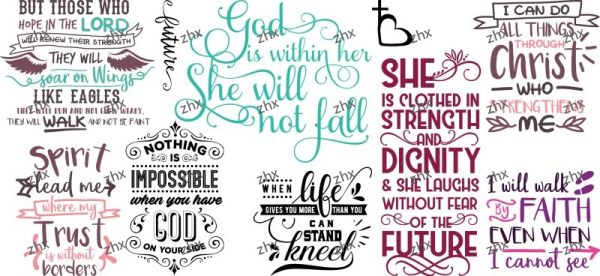 BUT THOSE WHO
HOPE IN THE LORD
WILL RENEW THEIR STRENGTH
THEY WILL
soar on Wings
LIKE EAGLES
THEY WILL RUN AND NOT GROW WEARY,
THEY WILL WALK AND NOT BE FAINT
future
God
is within her
She will
not fall
I CAN DO
ALL THINGS
THROUGH
Christ
WHO
STRENGTHENS
ME
SHE
IS CLOTHED IN
STRENGTH
AND
DIGNITY
& SHE LAUGHS
WITHOUT FEAR
OF THE
FUTURE
Spirit
lead me
where my
Trust
is without
borders
NOTHING
IS
IMPOSSIBLE
when you have
GOD
ON YOUR SIDE
WHEN life
GIVES YOU MORE THAN YOU
CAN
STAND
kneel
I will walk
BY FAITH
EVEN WHEN
I cannot see
zhx
zhx
zhx
zhx
zhx
zhx
zhx
zhx
zhx